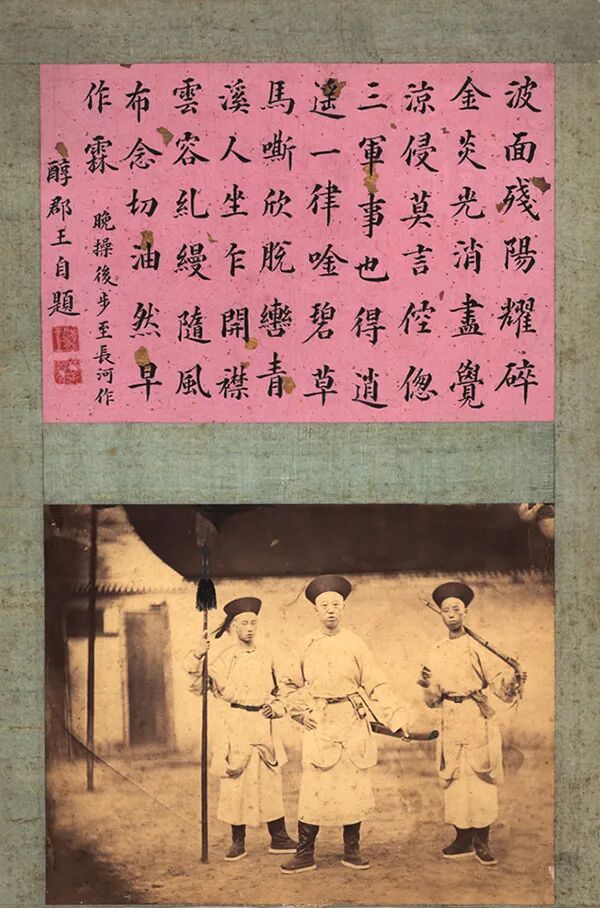 波面殘陽耀碎
金炎光消盡覺
涼侵莫言倥偬
三軍事也得逍
遥一律唫碧草
馬嘶欣脫轡青
溪人坐乍開襟
雲容糺縵隨風
布念切油然早
作霖
晚操後步至長河作
醇郡王自題